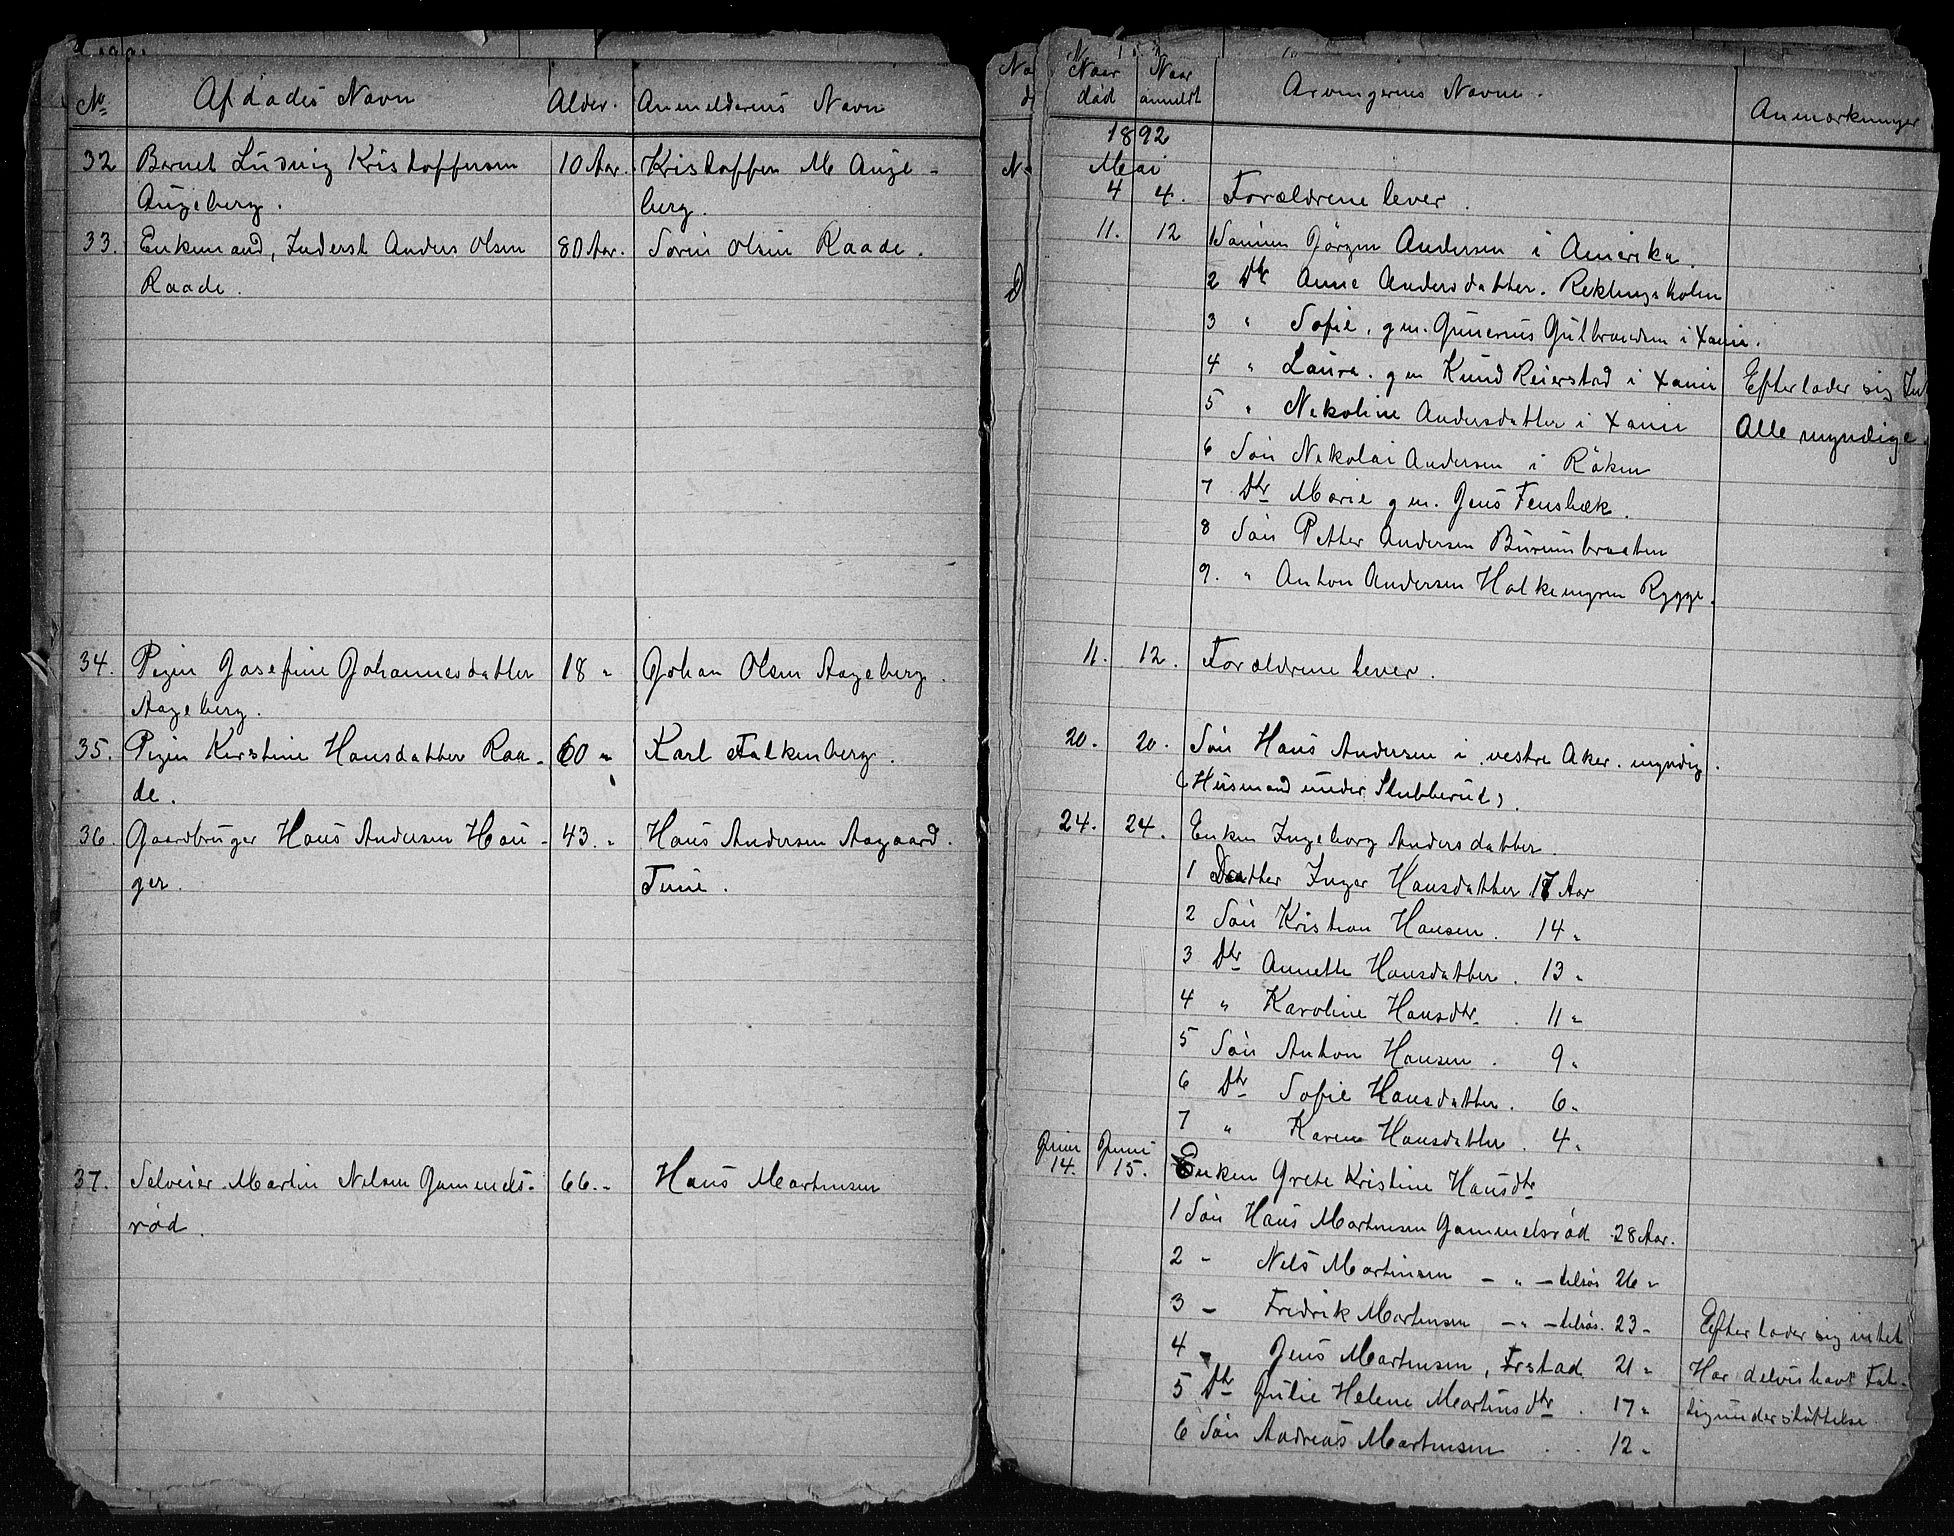 No Afdødes Navn Alder. Anmelderens Navn
32 Barnet Ludvig Kristoffersen 10 Aar. Kristoffer M Auge-
Augeberg. berg.
33. Enkemand, Inderst Anders Olsen 80 Aar. Søren Olsen Raade.
Raade.
34. Pigen Josefine Johannesdatter 18 " Johan Olsen Aageberg.
Aageberg.
35. Pigen Kirstine Hansdatter Raa- 60 " Karl Falkenberg.
de.
36. Gaardbruger Hans Andersen Hau- 43. " Hans Andersen Aagaard.
ger. Tune.
37. Selveier Martin Nilsen Gammels- 66. " Hans Martinsen
rød.
Naar død Naar anmeldt Arvingernes Navne. Anmærkninger
1892
Mai
4 4. Forældrene lever.
11. 12 1 Sønnen Jørgen Andersen i Amerika.
2 Dtr Anne Andersdatter. Reklingsholm
3 " Sofie, gm. Gunerius Gulbrandsen i Xania.
4 " Laura. gm Knud Reierstad i Xania Efterlader sig In
5 " Nekoline Andersdatter i Xania Alle myndige.
6 Søn Nekolai Andersen i Røken
7 Dtr Marie gm. Jens Fensbæk.
8 Søn Petter Andersen Burumbraaten
9. " Anton Andersen Halkemyren Rygge.
11. 12. Forældrene lever.
20. 20. Søn Hans Andersen i vestre Aker. myndig.
(Husmand under Stubberud).
24. 24. Enken Ingeborg Andersdatter.
1 Datter Inger Hansdatter 17 Aar
2 Søn Kristian Hansen. 14 "
3 Dtr Annette Hansdatter. 13 "
4 " Karoline Hansdtr. 11 "
5 Søn Anton Hansen. 9 "
6 Dtr Sofie Hansdatter. 6 "
7 " Karen Hansdatter. 4 "
Juni Juni
14. 15. Enken Grete Kristine Hansdtr
1 Søn Hans Martinsen Gammelsrød 28 Aar.
2 - Nels Martinsen - " - 26 "
3 - Fredrik Martinsen - " - 23 - Efterlader sig intet
4 - Jens Martinsen, Årstad 21 " Har delvis havt Fat-
5 Dtr Julie Helene Martinsdtr. 17 " tigunderstøttelse.
6 Søn Andreas Martinsen . . 12 "